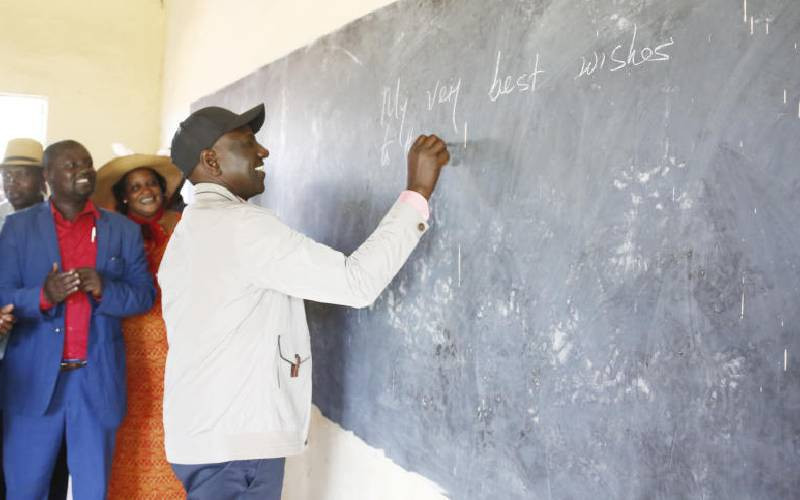 My very best wishes